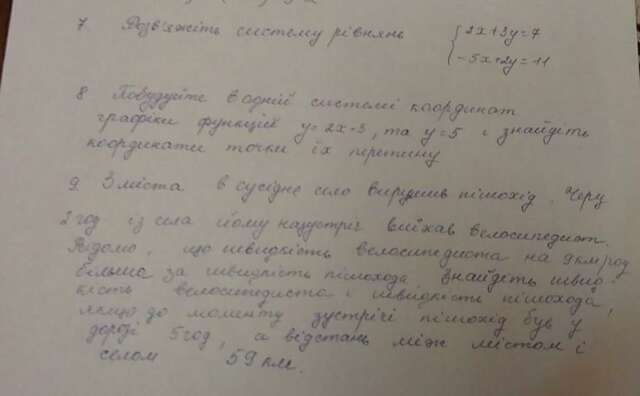 7. Розв'яжіть систему рівнянь { 2x+3y=7
-5x+2y=11
8 Побудуйте в одній системі координат
графіки функцій y=2x-3, та y=5 і знайдіть
координати точки їх перетину
9. З міста в сусіднє село вирушив пішохід. Через
2 год із села йому назустріч виїхав велосипедист.
Відомо, що швидкість велосипедиста на 9 км/год
більша за швидкість пішохода. Знайдіть швид-
кість велосипедиста і швидкість пішохода,
якщо до моменту зустрічі пішохід був у
дорозі 5 год, а відстань між містом і
селом 59 км.